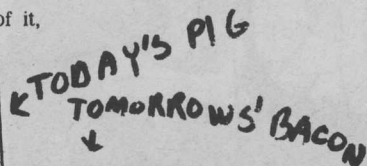 of it,
TODAY'S PIG
TOMORROWS' BACON